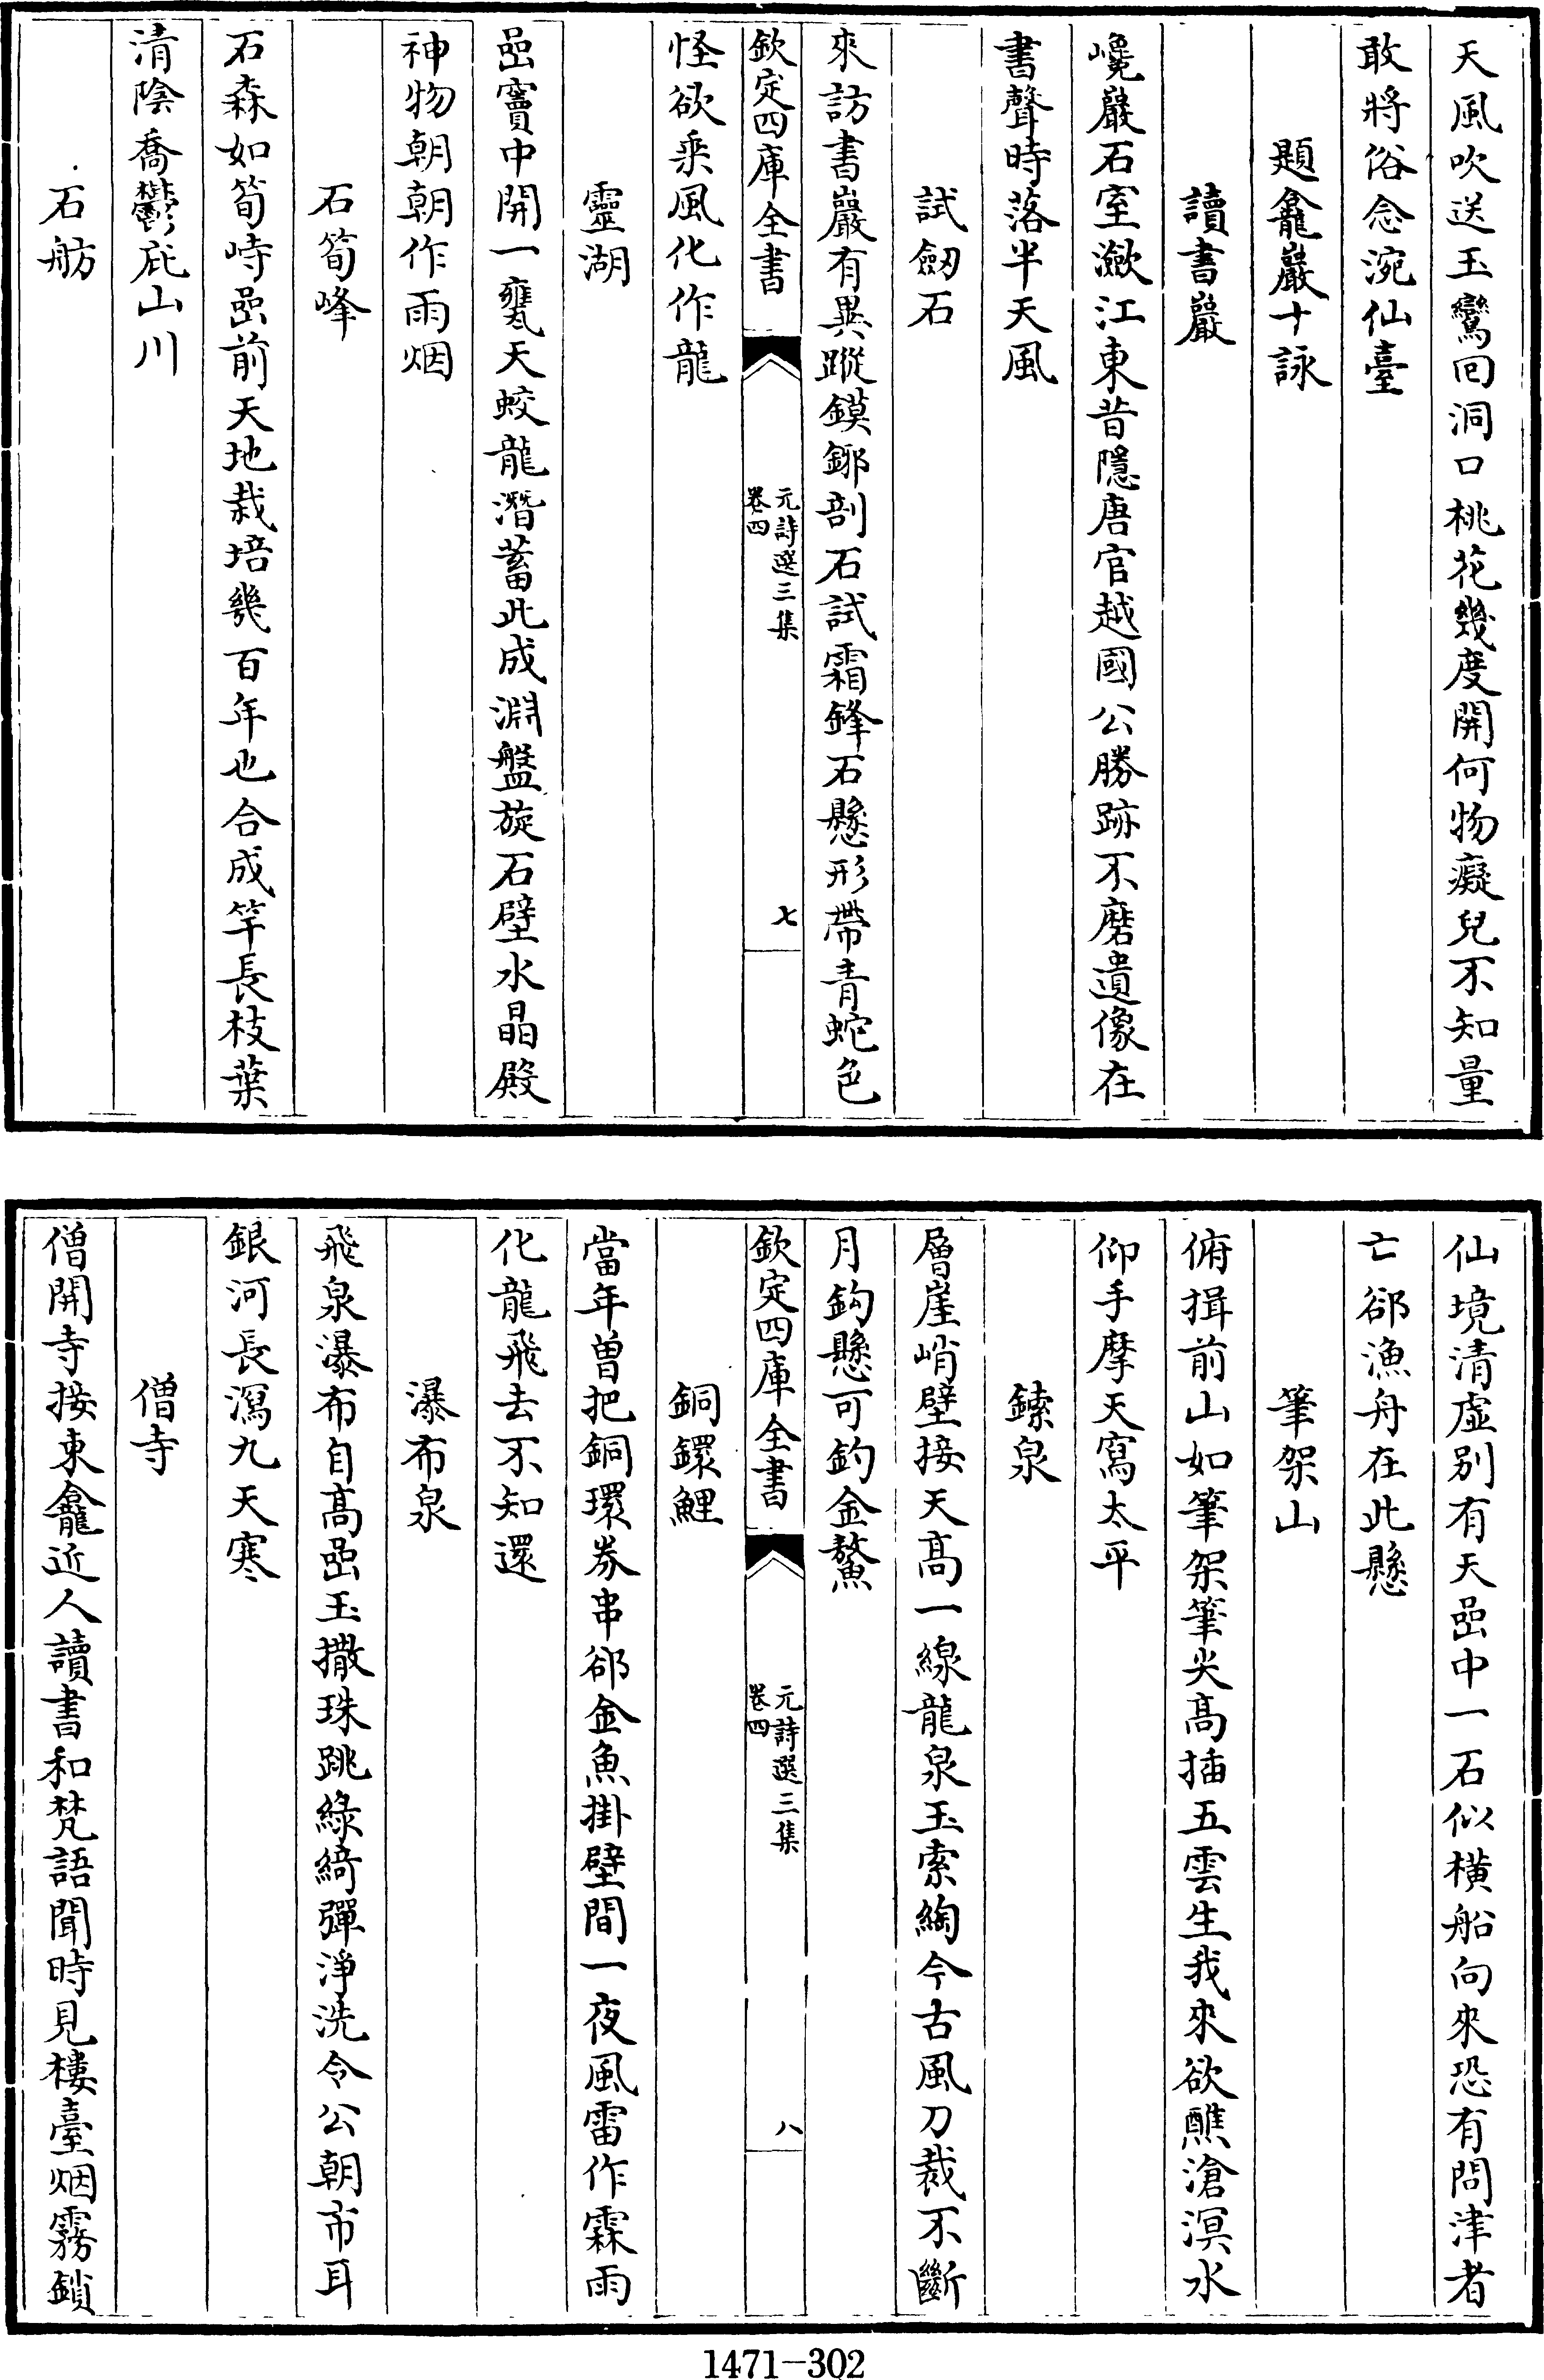 天風吹送玉鸞回洞口桃花幾度開何物癡兒不知量
敢將俗念涴仙臺
題龕巖十詠
讀書巖
巉巖石室瀲江東昔隱唐官越國公勝跡不磨遺像在
書聲時落半天風
試劒石
來訪書巖有異蹤鏌鋣剖石試霜鋒石懸形帶青蛇色
欽定四庫全書
元詩選三集
卷四
七
怪欲乘風化作龍
靈湖
嵒竇中開一甕天蛟龍潛蓄此成淵盤旋石壁水晶殿
神物朝朝作雨烟
石筍峰
石森如筍峙嵒前天地栽培幾百年也合成竿長枝葉
清陰喬鬱庇山川
石舫
仙境清虛别有天嵒中一石似橫船向來恐有問津者
亡郤漁舟在此懸
筆架山
俯揖前山如筆架筆尖高插五雲生我來欲醮滄溟水
仰手摩天寫太平
鎍泉
層崖峭壁接天高一線龍泉玉索綯今古風刀裁不斷
月鈎懸可釣金鰲
欽定四庫全書
元詩選三集
卷四
八
銅鐶鯉
當年曽把銅環券串郤金魚掛壁間一夜風雷作霖雨
化龍飛去不知還
瀑布泉
飛泉瀑布自高嵒玉撒珠跳綠綺彈淨洗令公朝市耳
銀河長瀉九天寒
僧寺
僧開寺接東龕近人讀書和梵語聞時見樓臺烟霧鎖
1471-302